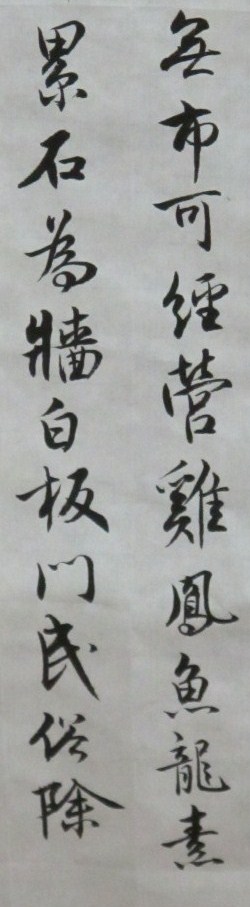 無市可經營雞鳳魚龍素
累石為牆白板門民俗除